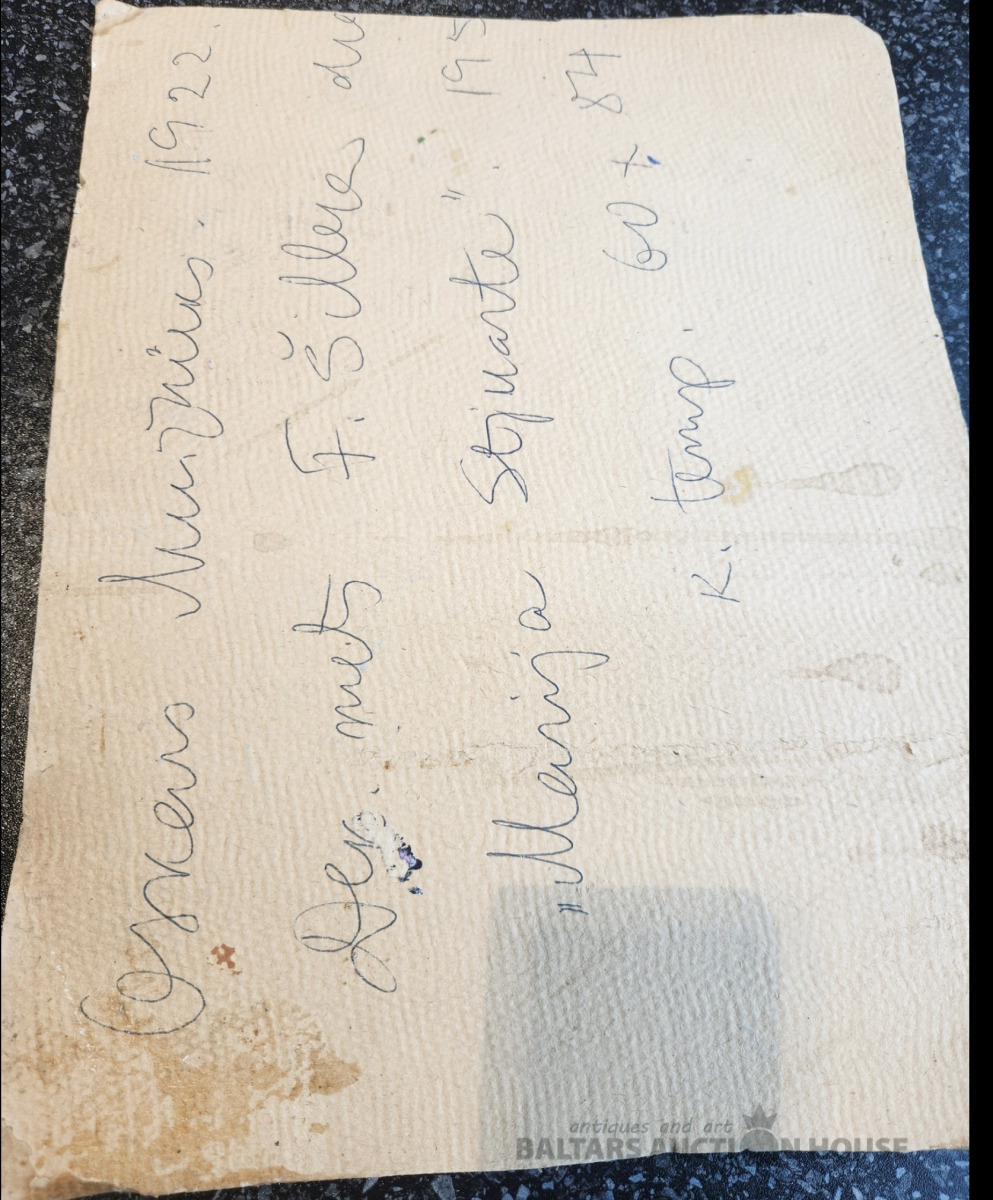 Oskars Muižnieks. 1922.
Dek. mets F. Šillera
"Marija Stjuarte". 195
K. temp. 60 x 84
antiques and art
BALTARS AUCTION HOUSE